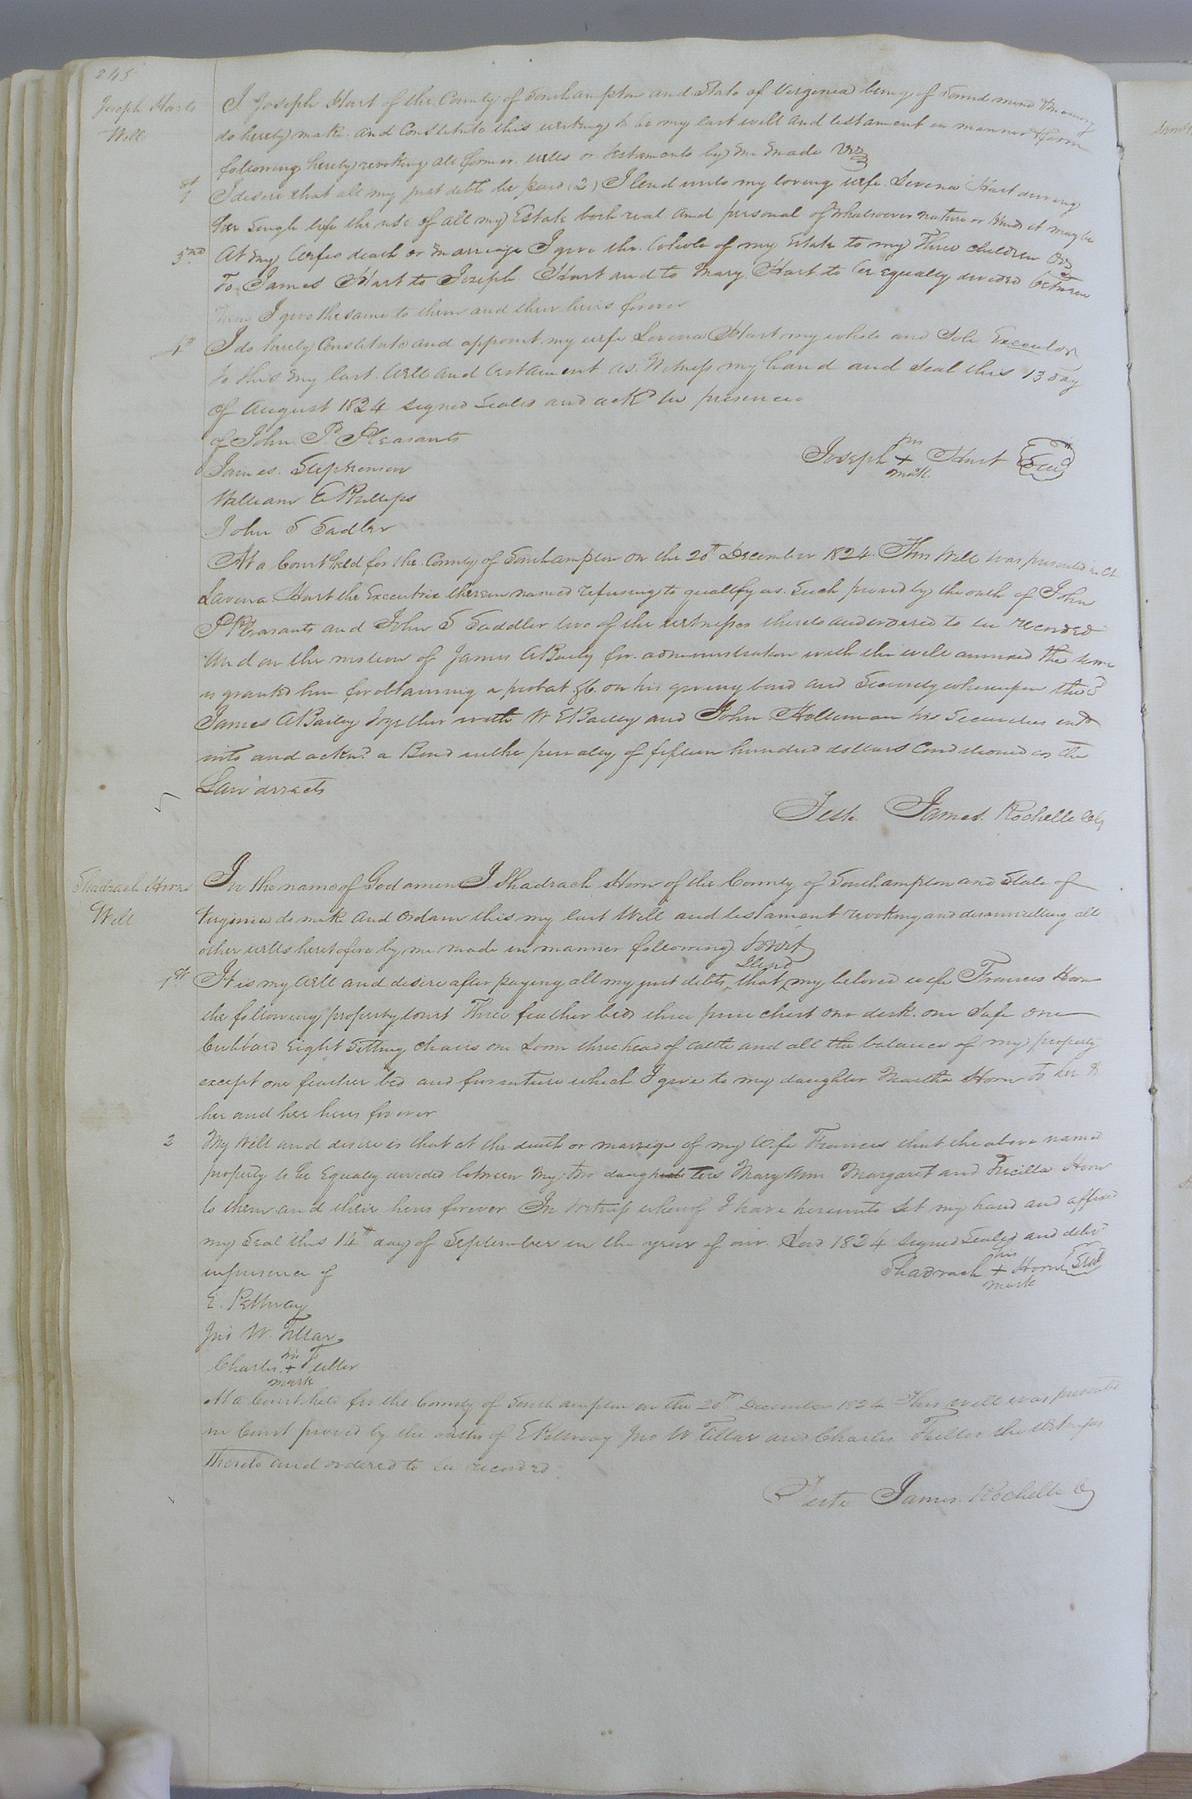 Joseph Harts
Will
I Joseph Hart of the County of Southampton and State of Virginia being of sound mind & memory
do hereby make and Constitute this writing to be my last will and testament in manner & form
following hereby revoking all former wills or testaments by me made Viz
1st I desire that all my just debts be paid (2) I lend unto my loving wife Lavena Hart during
her single life the use of all my Estate both real and personal of whatsoever nature or kind it may be
3rd At my Wifes death or marriage I give the whole of my Estate to my Three children Viz
To James Hart to Joseph Hart and to Mary Hart to be equally divided between
them I give the same to them and their heirs forever
4th I do hereby Constitute and appoint my wife Lavena Hart my whole and Sole Executor
to this my last Will and testament As Witness my hand and Seal this 13 day
of August 1824 Signed Sealed and ackd in presence
of John P Pleasants
Joseph his + mark Hart Seal
James Stephenson
William E Phillips
John S Sadler
At a Court held for the County of Southampton on the 20th December 1824 This Will was presented in Ct
Lavena Hart the Executrix therein named refusing to qualify as Such proved by the oath of John
P Pleasants and John S Saddler two of the witnesses thereto and ordered to be recorded
And on the motion of James A Baily for administration with the will annexed the same
is granted him for obtaining a probat &c on his giving bond and Security whereupon the sd
James A Bailey together with W E Bailey and John Holleman his Securities entd
into and acknd a Bond in the penalty of fifteen hundred dollars Conditioned as the
Law directs
Teste James Rochelle
Shadrach Horns
Will
In the name of God amen I Shadrach Horn of the County of Southampton and State of
Virginia do make and Ordain this my last Will and testament revoking and disannulling all
other wills heretofore by me made in manner following towit
1st It is my Will and desire after paying all my just debts, that I lend my beloved wife Frances Horn
the following property towit Three feather beds three pine chest one desk one Safe one
Cubbard Eight Setting chairs one Loom three head of cattle and all the balance of my property
except one feather bed and furniture which I give to my daughter Martha Horn to her &
her and her heirs forever
2 My Will and desire is that at the death or marriage of my Wife Frances that the above named
property to be Equally divided between my two daughters Mary Ann Margaret and Pricilla Horn
to them and their heirs forever In Witness whereof I have hereunto Set my hand and affixed
my Seal this 14th day of September in the year of our Lord 1824 Signed Sealed and delivd
in presence of
Shadrach his + mark Horn Seal
E. Pettway
Jno W. Tillar
Charles his + mark
At a Court held for the County of Southampton on the 20th December 1824 This will was presented
in Court proved by the oaths of E Pettway Jno W Tillar and Charles the Witnesses
thereto and ordered to be recorded
Teste James Rochelle